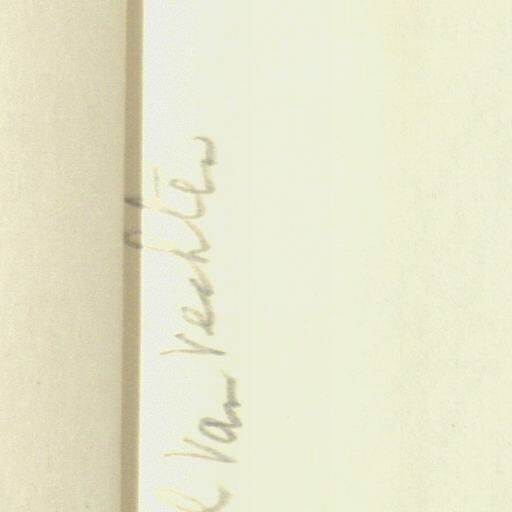 Van Vechten